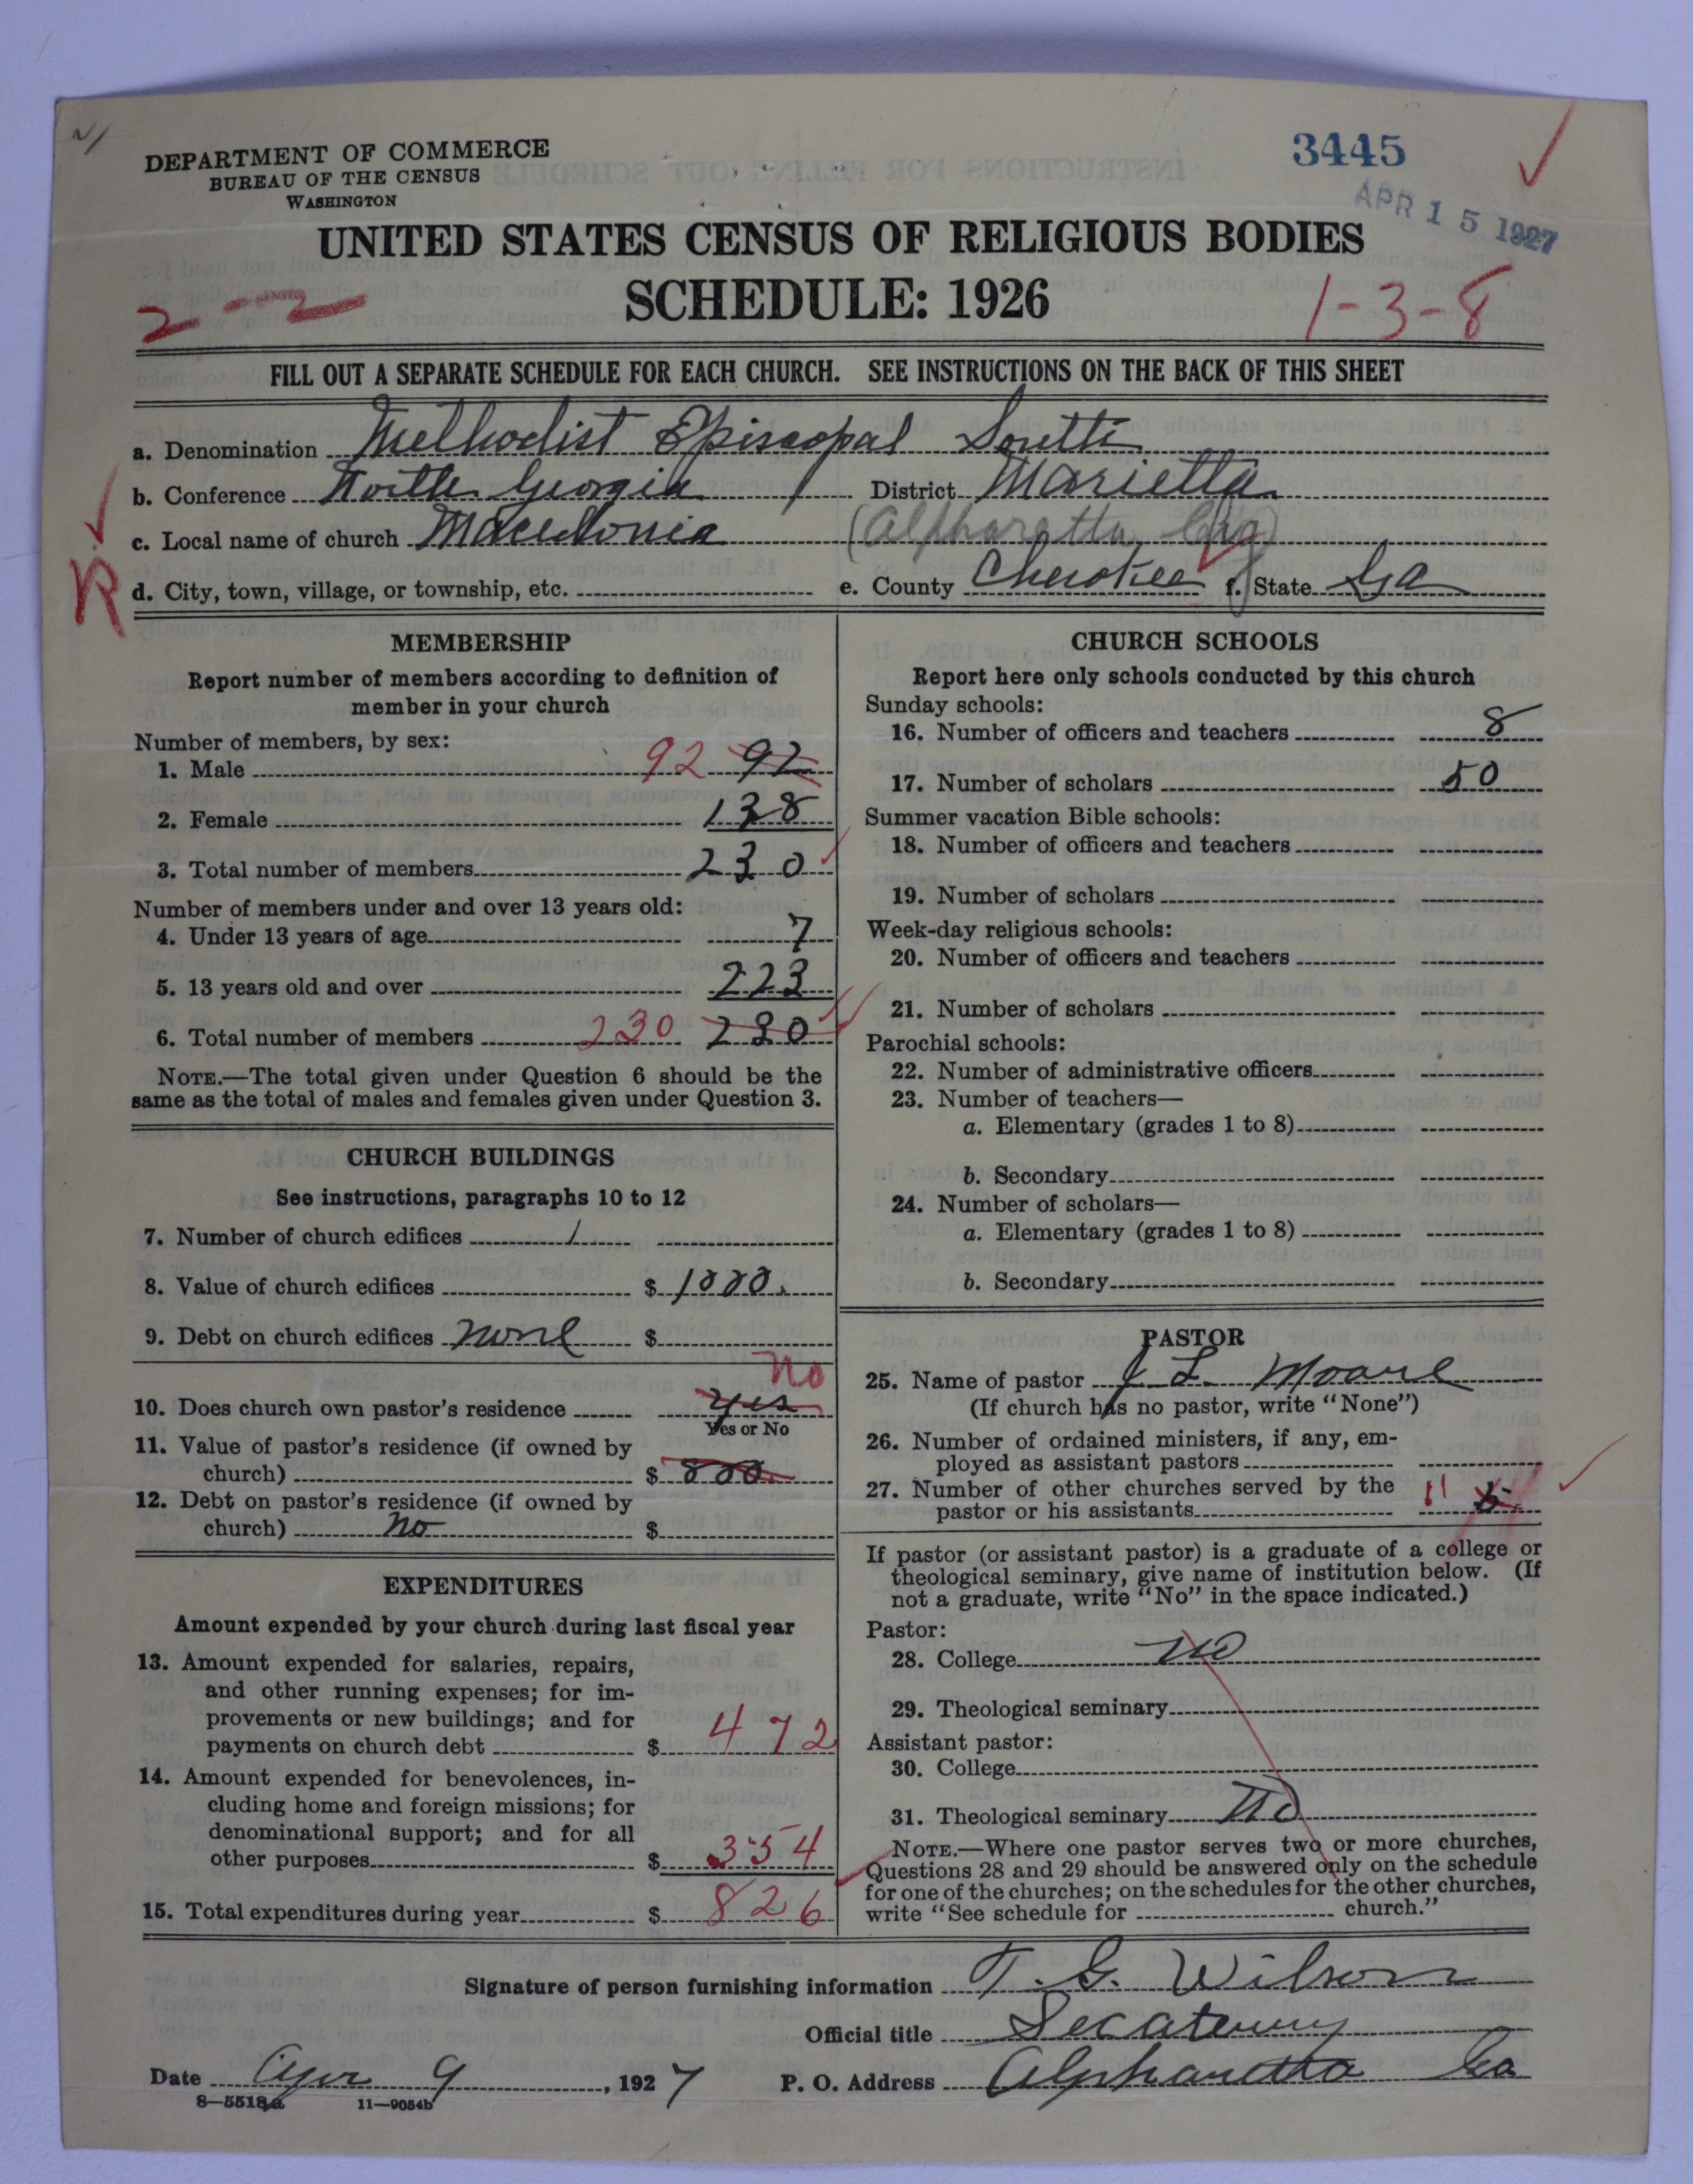 DEPARTMENT OF COMMERCE
BUREAU OF THE CENSUS
WASHINGTON
3445
APR 15 1927
UNITED STATES CENSUS OF RELIGIOUS BODIES
SCHEDULE: 1926
2--2
1-3-8
FILL OUT A SEPARATE SCHEDULE FOR EACH CHURCH. SEE INSTRUCTIONS ON THE BACK OF THIS SHEET
a. Denomination Methodist Episcopal South
b. Conference North Georgia District Marietta
c. Local name of church Macedonia (Alpharetta Chg)
R
d. City, town, village, or township, etc. e. County Cherokee f. State Ga
MEMBERSHIP
Report number of members according to definition of
member in your church
Number of members, by sex:
1. Male 92 92
2. Female 138
3. Total number of members 230
Number of members under and over 13 years old:
4. Under 13 years of age 7
5. 13 years old and over 223
6. Total number of members 230 230
NOTE.—The total given under Question 6 should be the
same as the total of males and females given under Question 3.
CHURCH BUILDINGS
See instructions, paragraphs 10 to 12
7. Number of church edifices 1
8. Value of church edifices $ 1000.
9. Debt on church edifices none $
No
10. Does church own pastor's residence yes
Yes or No
11. Value of pastor's residence (if owned by
church) $ 800.
12. Debt on pastor's residence (if owned by
church) no $
EXPENDITURES
Amount expended by your church during last fiscal year
13. Amount expended for salaries, repairs,
and other running expenses; for im-
provements or new buildings; and for
payments on church debt $ 472
14. Amount expended for benevolences, in-
cluding home and foreign missions; for
denominational support; and for all
other purposes $ 354
15. Total expenditures during year $ 826
CHURCH SCHOOLS
Report here only schools conducted by this church
Sunday schools:
16. Number of officers and teachers 8
17. Number of scholars 50
Summer vacation Bible schools:
18. Number of officers and teachers
19. Number of scholars
Week-day religious schools:
20. Number of officers and teachers
21. Number of scholars
Parochial schools:
22. Number of administrative officers
23. Number of teachers—
a. Elementary (grades 1 to 8)
b. Secondary
24. Number of scholars—
a. Elementary (grades 1 to 8)
b. Secondary
PASTOR
25. Name of pastor J L. Moore
(If church has no pastor, write "None")
26. Number of ordained ministers, if any, em-
ployed as assistant pastors
27. Number of other churches served by the
pastor or his assistants 11 5
If pastor (or assistant pastor) is a graduate of a college or
theological seminary, give name of institution below. (If
not a graduate, write "No" in the space indicated.)
Pastor:
28. College no
29. Theological seminary
Assistant pastor:
30. College
31. Theological seminary no
NOTE.—Where one pastor serves two or more churches,
Questions 28 and 29 should be answered only on the schedule
for one of the churches; on the schedules for the other churches,
write "See schedule for church."
Signature of person furnishing information T. G. Wilson
Official title Secaterury
Date Apr 9, 1927 P. O. Address Alpharetta Ga
8—5518a 11—9054b